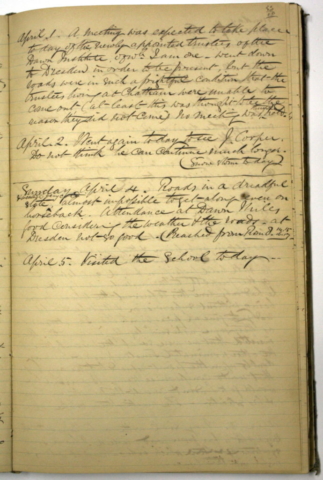 April 1. A meeting was expected to take place
to day of the newly appointed trustees of the
Dawn Institute of wh I am one - went down
to Dresden in order to be present, but the
roads were in such a frightful condition that the
trustees living at Chatham were unable to
come out (at least this was thought to be the
reason they did not come) no meeting was held.
April 2. Went again to day to see J. Cooper.
Do not think he can continue much longer.
(Snow storm to day)
Sunday April 4. Roads in a dreadful
state, almost impossible to get along even on
horseback. Attendance at Dawn Mills
good considering the weather & the roads, at
Dresden not so good. (Preached from Rom. 8. 25)
April 5. Visited the School to day.